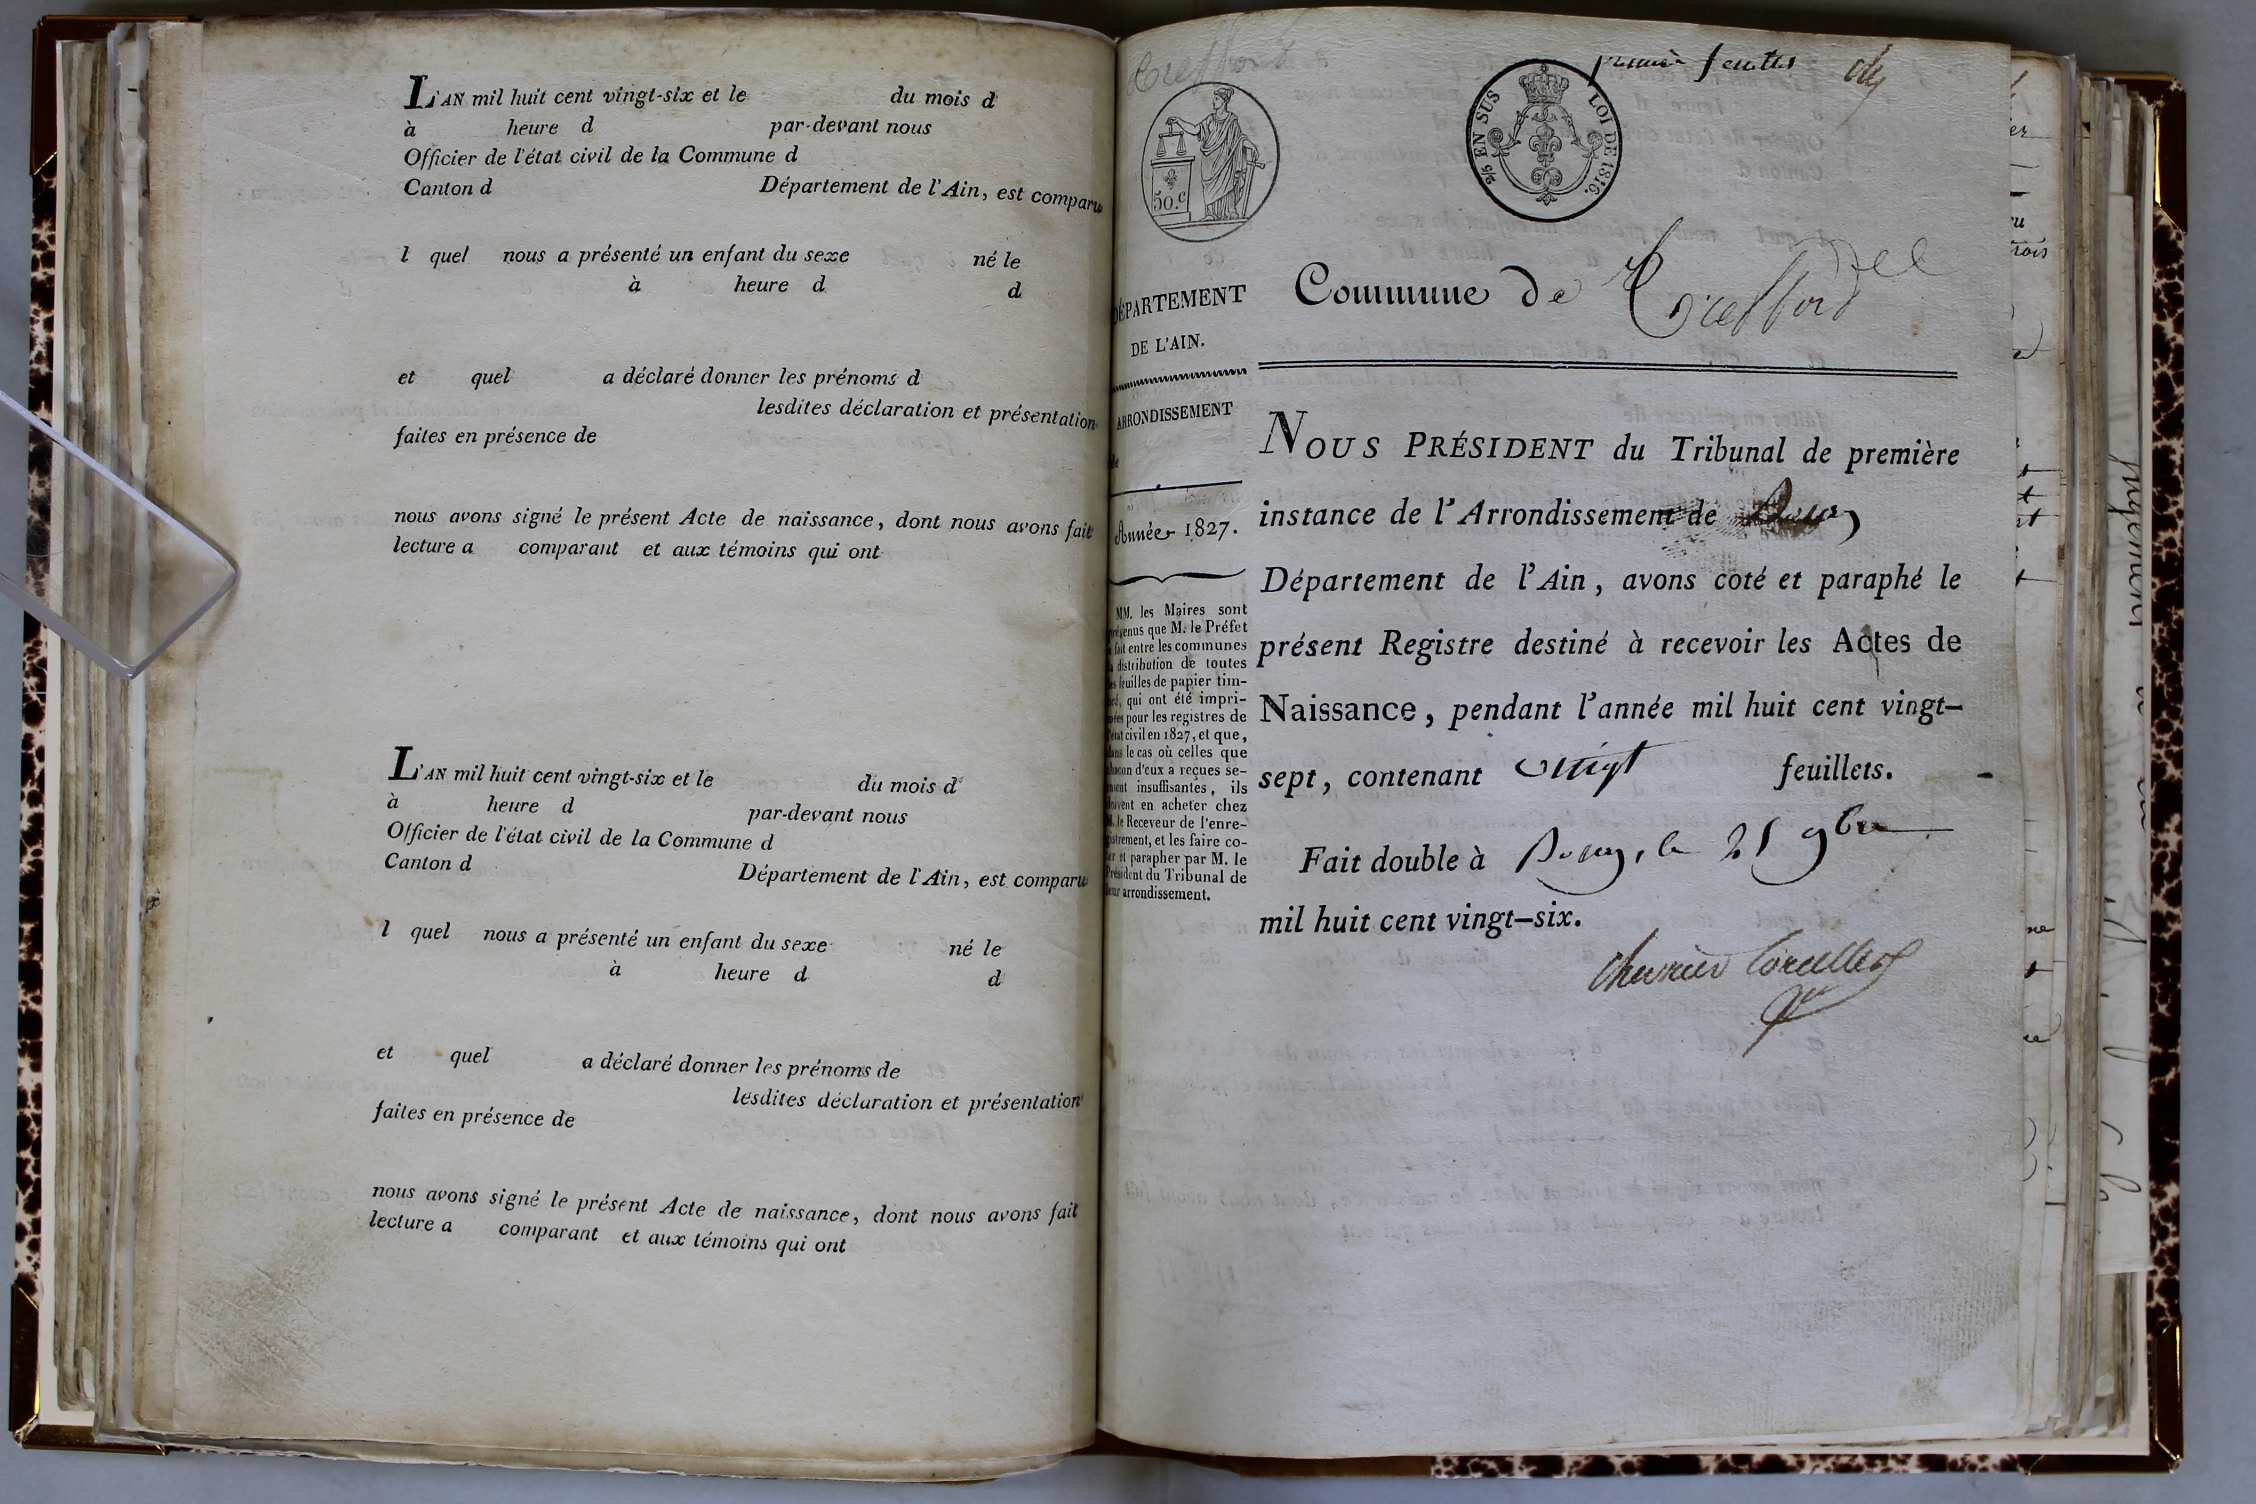 L'AN mil huit cent vingt-six et le du mois d
à heure d par-devant nous
Officier de l'état civil de la Commune d
Canton d Département de l'Ain, est comparu
l quel nous a présenté un enfant du sexe né le
à heure d d
et quel a déclaré donner les prénoms d
lesdites déclaration et présentation
faites en présence de
nous avons signé le présent Acte de naissance, dont nous avons fait
lecture a comparant et aux témoins qui ont
L'AN mil huit cent vingt-six et le du mois d
à heure d par-devant nous
Officier de l'état civil de la Commune d
Canton d Département de l'Ain, est comparu
l quel nous a présenté un enfant du sexe né le
à heure d d
et quel a déclaré donner les prénoms de
lesdites déclaration et présentation
faites en présence de
nous avons signé le présent Acte de naissance, dont nous avons fait
lecture a comparant et aux témoins qui ont
Treffort
EN SUS LOI DE 1816.
50.c
Commune de Treffort
DÉPARTEMENT
DE L'AIN.
ARRONDISSEMENT
de
Année 1827.
MM. les Maires sont
prévenus que M. le Préfet
a fait entre les communes
la distribution de toutes
les feuilles de papier tim-
bré, qui ont été impri-
mées pour les registres de
l'état civil en 1827, et que,
dans le cas où celles que
chacun d'eux a reçues se-
raient insuffisantes, ils
doivent en acheter chez
M. le Receveur de l'enre-
gistrement, et les faire co-
ter et parapher par M. le
Président du Tribunal de
leur arrondissement.
NOUS PRÉSIDENT du Tribunal de première
instance de l'Arrondissement de Bourg
Département de l'Ain, avons coté et paraphé le
présent Registre destiné à recevoir les Actes de
Naissance, pendant l'année mil huit cent vingt-
sept, contenant vingt feuillets.
Fait double à Bourg, le 25 9bre
mil huit cent vingt-six.
Chevrier Corcelles